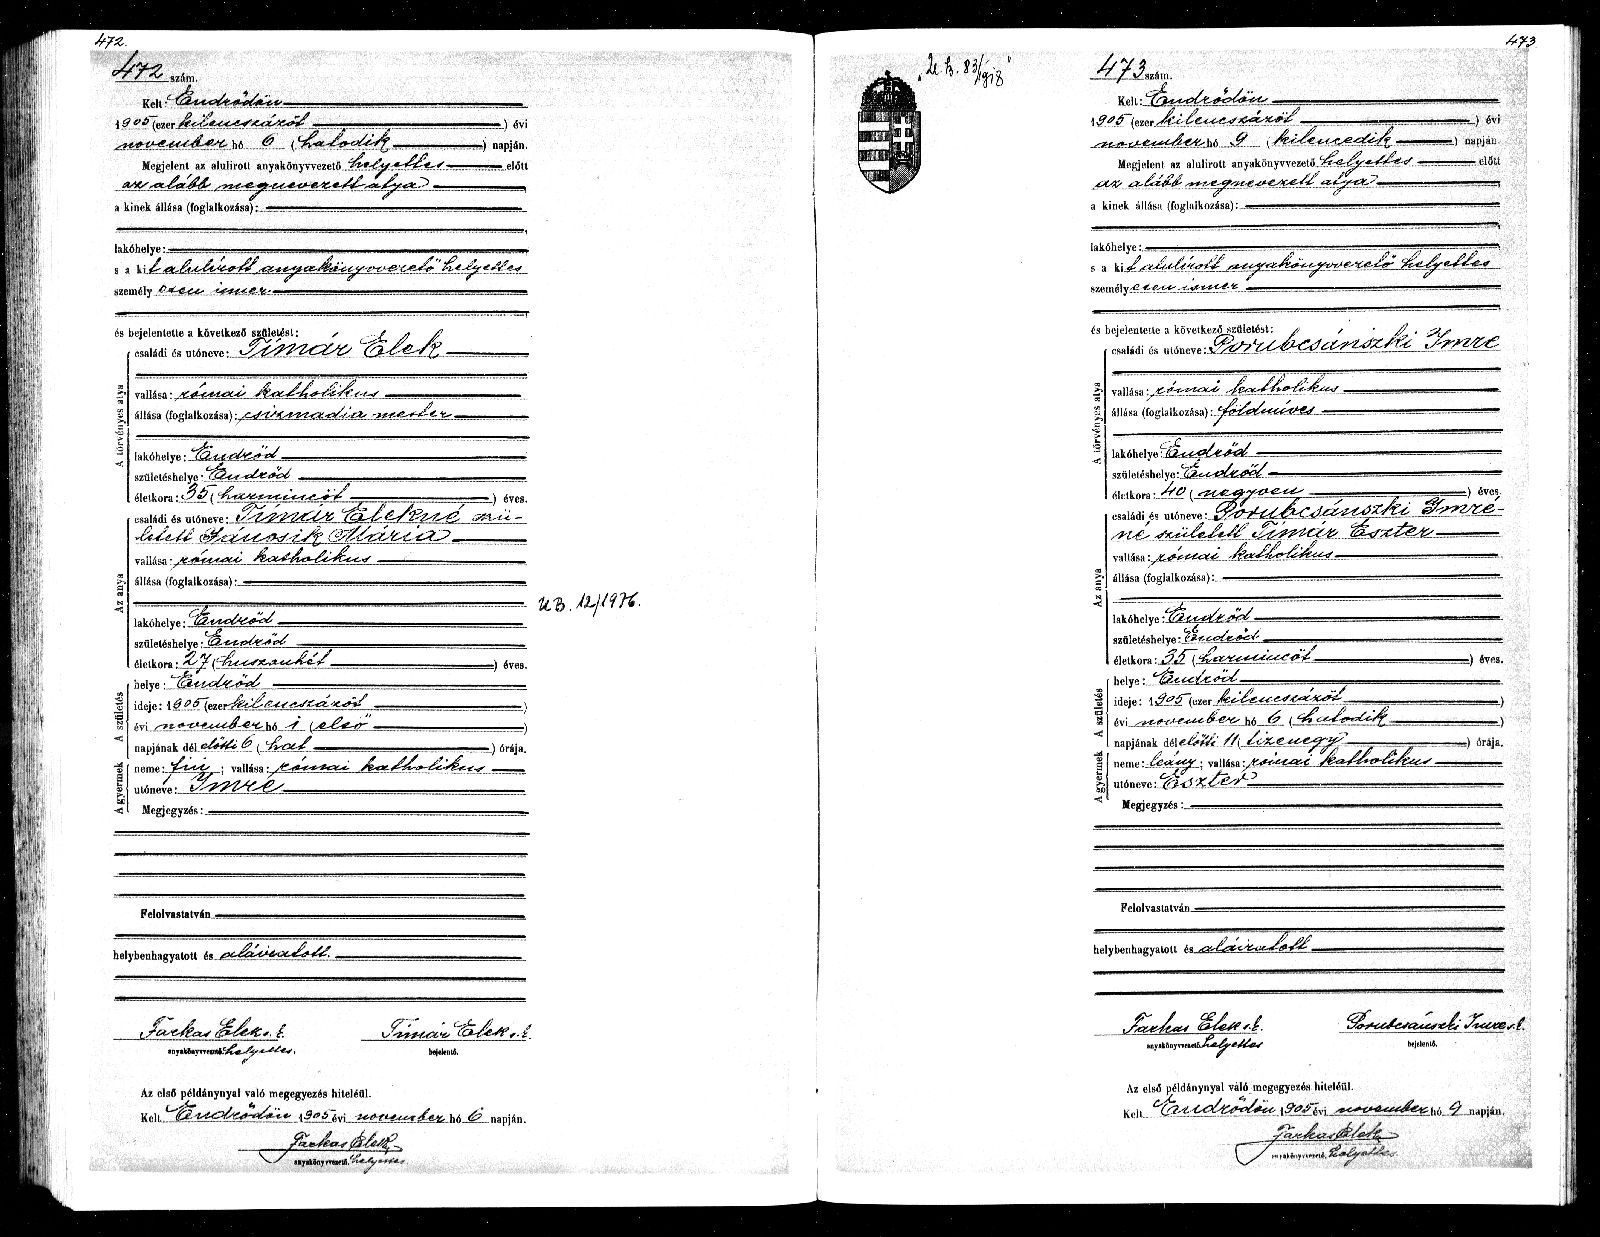 472.
472 szám.
Kelt: Endrődön
1905 (ezer kilencszázöt ) évi
november hó 6 (hatodik ) napján.
Megjelent az alulirott anyakönyvvezető helyettes előtt
az alább megnevezett atya
a kinek állása (foglalkozása):
lakóhelye:
s a kit alulírott anyakönyvvezető helyettes
személyesen ismer.
és bejelentette a következő születést:
A törvényes atya
családi és utóneve: Tímár Elek
vallása: római katholikus
állása (foglalkozása): csizmadia mester
lakóhelye: Endrőd
születéshelye: Endrőd
életkora: 35 (harmincöt ) éves.
Az anya
családi és utóneve: Tímár Elekné szü-
letett Jánosik Mária
vallása: római katholikus
állása (foglalkozása):
lakóhelye: Endrőd
születéshelye: Endrőd
életkora: 27 (huszonhét ) éves.
A születés
helye: Endrőd
ideje: 1905 (ezer kilencszázöt )
évi november hó 1 (első )
napjának dél előtti 6 (hat ) órája.
A gyermek
neme: fiú ; vallása: római katholikus
utóneve: Imre
Megjegyzés:
Felolvastatván
helybenhagyatott és aláiratott.
Farkas Elek s. k. Tímár Elek s. k.
anyakönyvvezető helyettes. bejelentő.
Az első példánynyal való megegyezés hiteléül.
Kelt Endrődön 1905 évi november hó 6 napján.
Farkas Elek
anyakönyvvezető. helyettes
UB. 12/1976.
473
"U. B. 83/918"
473 szám.
Kelt: Endrődön
1905 (ezer kilencszázöt ) évi
november hó 9 (kilencedik ) napján
Megjelent az alulirott anyakönyvvezető helyettes előtt
az alább megnevezett atya
a kinek állása (foglalkozása):
lakóhelye:
s a kit alulírott anyakönyvvezető helyettes
személyesen ismer
és bejelentette a következő születést:
A törvényes atya
családi és utóneve: Porubcsánszki Imre
vallása: római katholikus
állása (foglalkozása): földmíves
lakóhelye: Endrőd
születéshelye: Endrőd
életkora: 40 (negyven ) éves
Az anya
családi és utóneve: Porubcsánszki Imré-
né született Tímár Eszter
vallása: római katholikus
állása (foglalkozása):
lakóhelye: Endrőd
születéshelye: Endrőd
életkora: 35 (harmincöt ) éves.
A születés
helye: Endrőd
ideje: 1905 (ezer kilencszázöt )
évi november hó 6 (hatodik )
napjának dél előtti 11 (tizenegy ) órája.
A gyermek
neme: leány; vallása: római katholikus
utóneve: Eszter
Megjegyzés:
Felolvastatván
helybenhagyatott és aláiratott
Farkas Elek s. k. Porubcsánszki Imre s. k.
anyakönyvvezető helyettes bejelentő.
Az első példánynyal való megegyezés hiteléül.
Kelt Endrődön 1905 évi november hó 9 napján.
Farkas Elek
anyakönyvvezető. helyettes